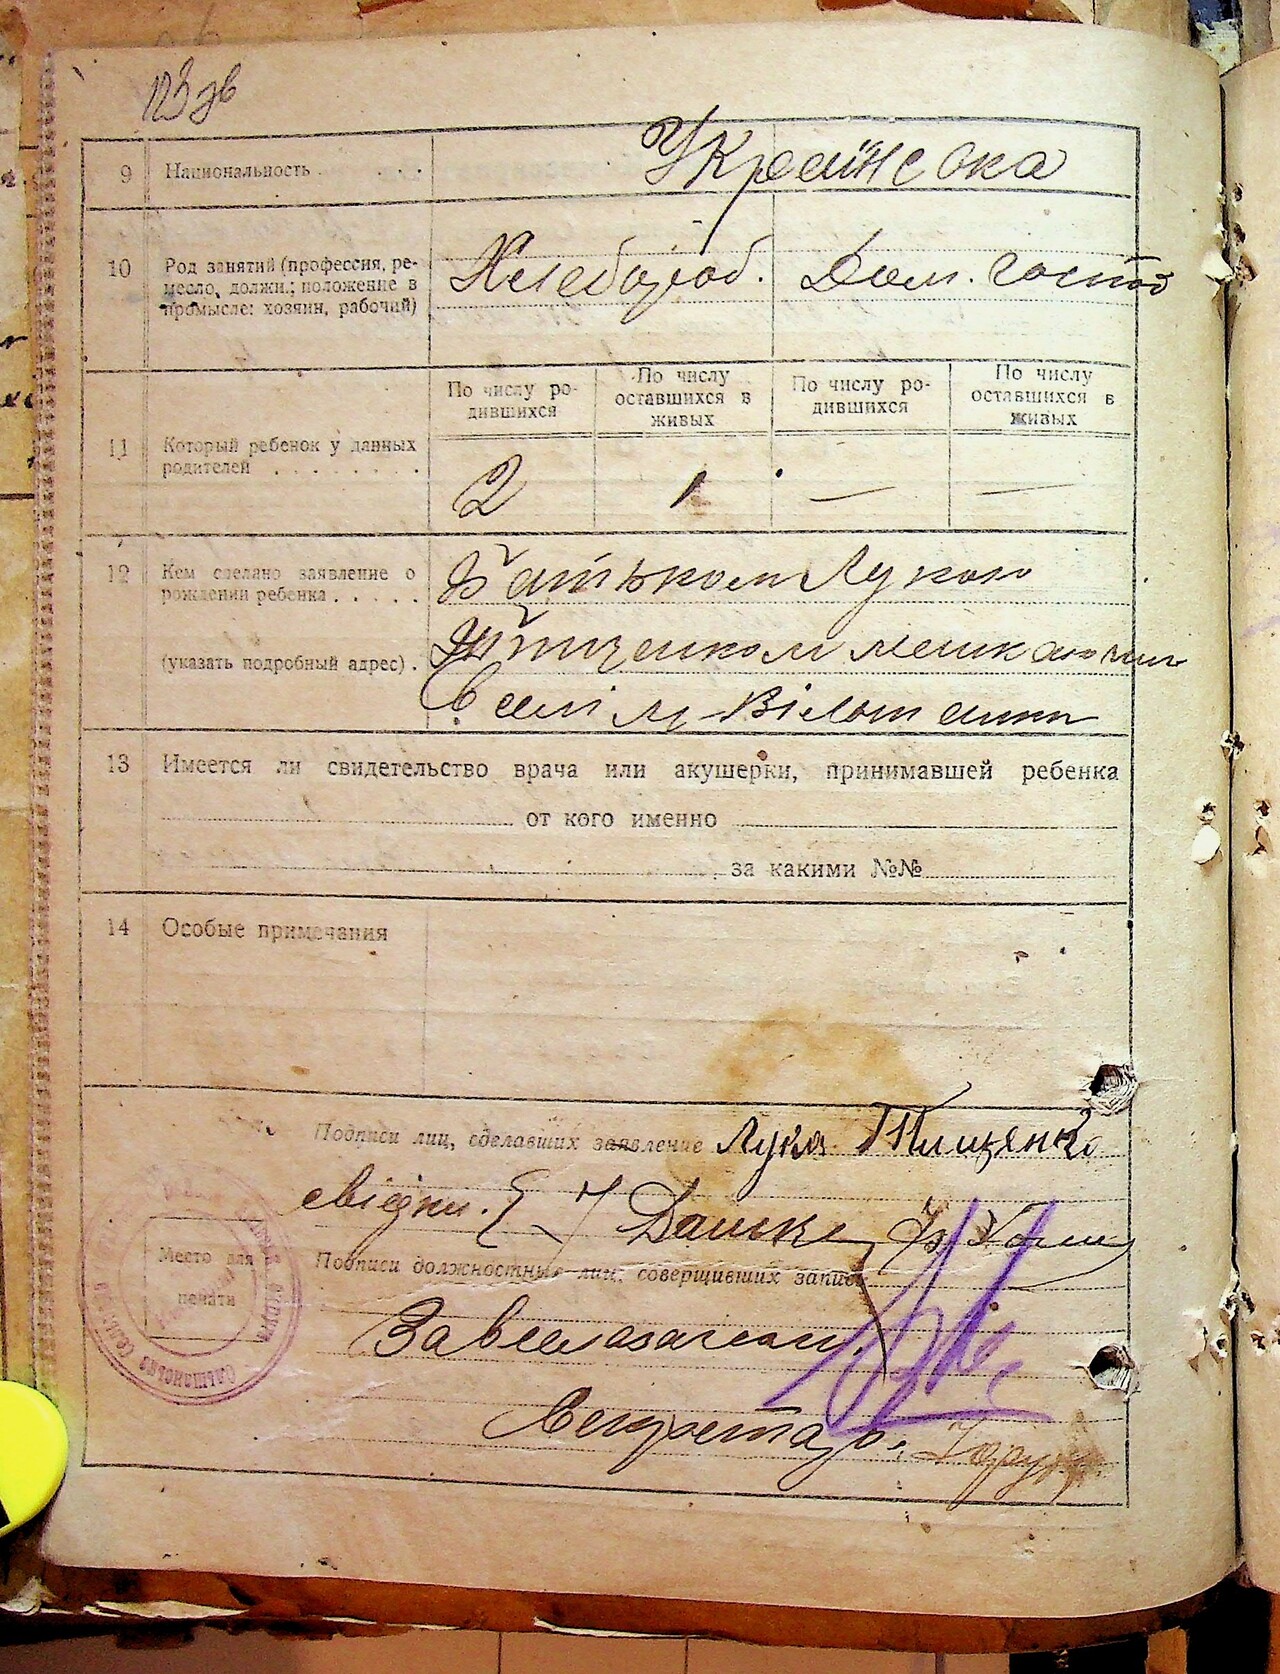 123 зв
9 Национальность . . . . Українська
10 Род занятий (профессия, ре-
месло, должн.; положение в
промысле: хозяин, рабочий)
Хлебороб. Дом. Господ
По числу ро-
дившихся
По числу
оставшихся в
живых
По числу ро-
дившихся
По числу
оставшихся в
живых
11 Который ребенок у данных
родителей . . . . . . . .
2 1 — —
12 Кем сделано заявление о
рождении ребенка . . . . .
Батьком Лукою
(указать подробный адрес) . Тищенком мешкаючим
в селі
13 Имеется ли свидетельство врача или акушерки, принимавшей ребенка
от кого именно
за какими №№
14 Особые примечания
Подписи лиц, сделавших заявление Лука Тищенко
свідки.
Место для
печати
Подписи должностных лиц, соверщивших запись
Секретар.